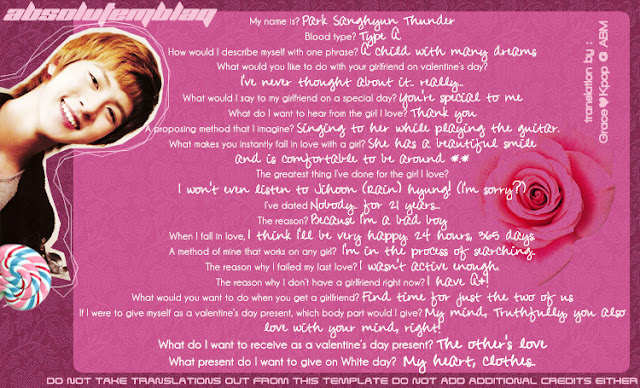 absolutemblaq
My name is? Park Sanghyun Thunder
Blood type? Type A
How would I describe myself with one phrase? A child with many dreams
What would you like to do with your girlfriend on valentine's day?
I've never thought about it.. really..
What would I say to my girlfriend on a special day? You're special to me
What do I want to hear from the girl I love? Thank you
A proposing method that I imagine? Singing to her while playing the guitar.
What makes you instantly fall in love with a girl? She has a beautiful smile
and is comfortable to be around *.*
The greatest thing I've done for the girl I love?
I won't even listen to Jihoon (Rain) hyung! (I'm sorry?)
I've dated Nobody. for 21 years..
The reason? Because I'm a bad boy
When I fall in love, I think I'll be very happy. 24 hours, 365 days
A method of mine that works on any girl? I'm in the process of searching.
The reason why I failed my last love? I wasn't active enough.
The reason why I don't have a girlfriend right now? I have A+!
What would you want to do when you get a girlfriend? Find time for just the two of us
If I were to give myself as a valentine's day present, which body part would I give? My mind, Truthfully, you also
love with your mind, right!
What do I want to receive as a valentine's day present? The other's love
What present do I want to give on White day? My heart, clothes.
translation by :
Grace♥Kpop @ ABM
DO NOT TAKE TRANSLATIONS OUT FROM THIS TEMPLATE DO NOT ADD ADDITIONAL CREDITS EITHER